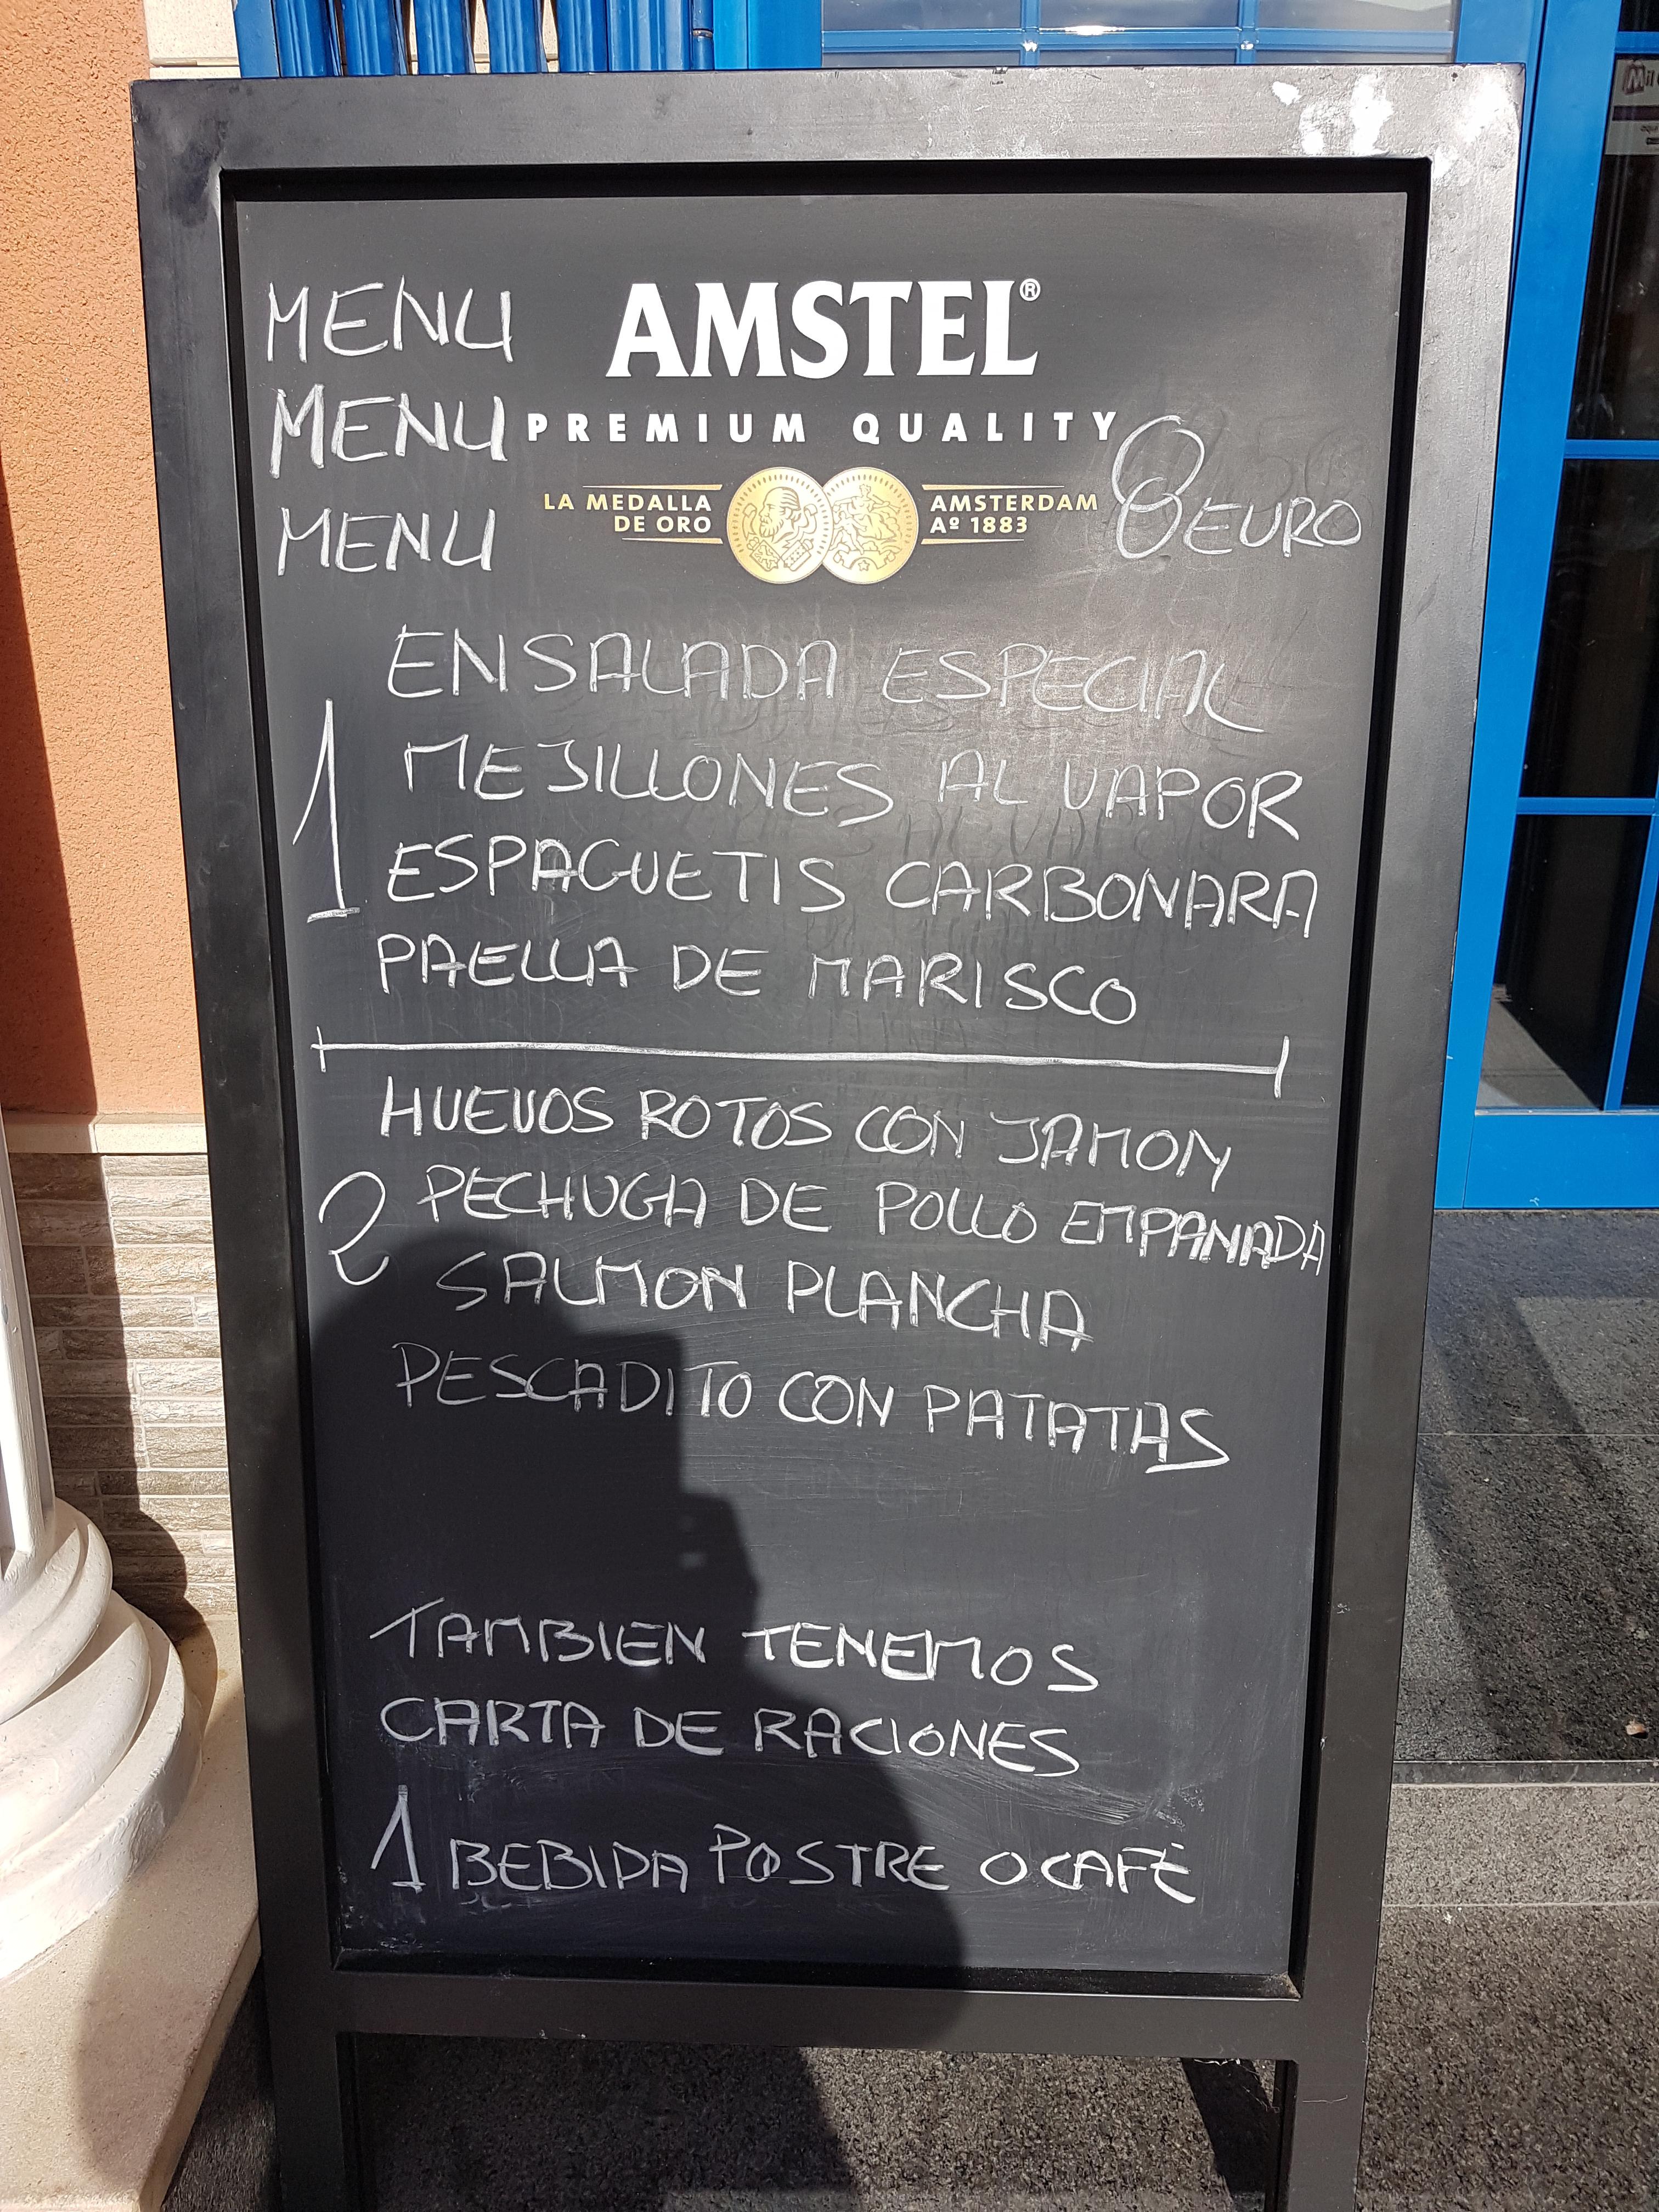 MENU AMSTEL®
MENU PREMIUM QUALITY
MENU LA MEDALLA DE ORO AMSTERDAM Aº 1883 8 EURO
ENSALADA ESPECIAL
1 MEJILLONES AL VAPOR
ESPAGUETIS CARBONARA
PAELLA DE MARISCO
HUEVOS ROTOS CON JAMON
2 PECHUGA DE POLLO EMPANADA
SALMON PLANCHA
PESCADITO CON PATATAS
TAMBIEN TENEMOS
CARTA DE RACIONES
1 BEBIDA POSTRE O CAFÉ